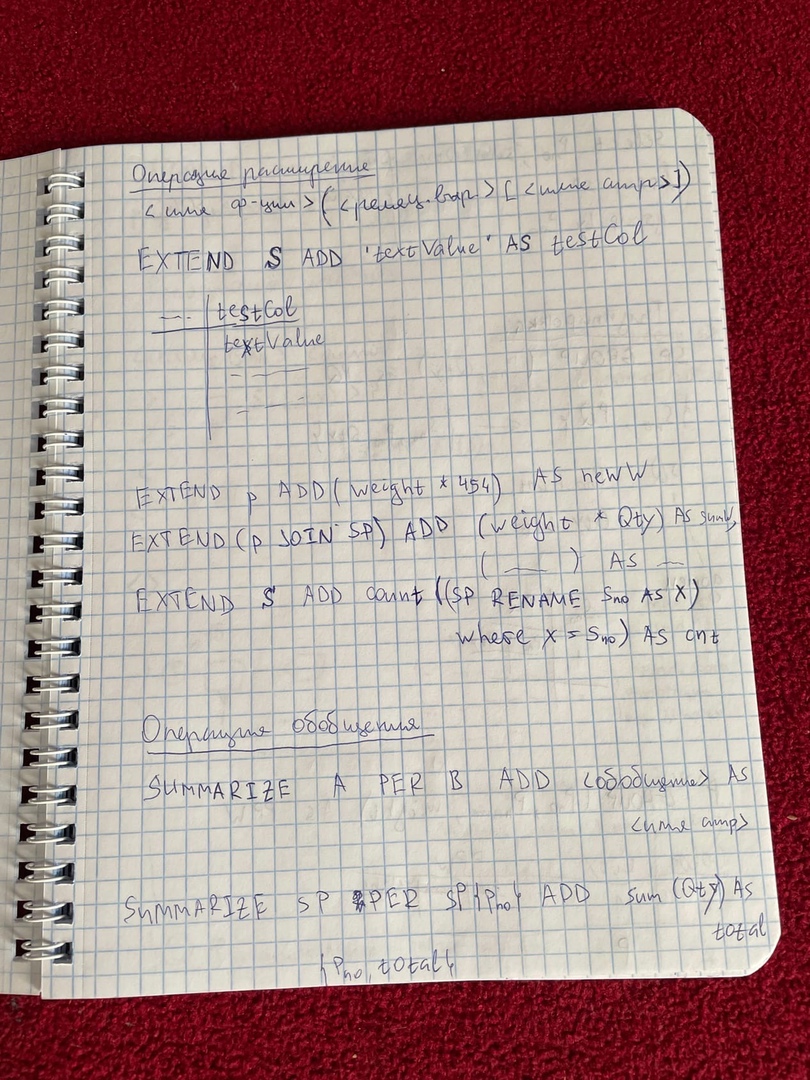 Операция расширение
<имя ф-ции> (<реляц. выр> [<имя атр>])
EXTEND S ADD 'textValue' AS testCol
... testCol
textValue
EXTEND p ADD (weight * 454) AS newW
EXTEND (p JOIN SP) ADD (weight * Qty) AS sumW,
( ___ ) AS __
EXTEND S ADD count ((SP RENAME Sno AS X)
where X = Sno) AS cnt
Операция обобщения
SUMMARIZE A PER B ADD <обобщение> AS
<имя атр>
SUMMARIZE SP PER SP{Pno} ADD sum (Qty) AS
total
{Pno, total}